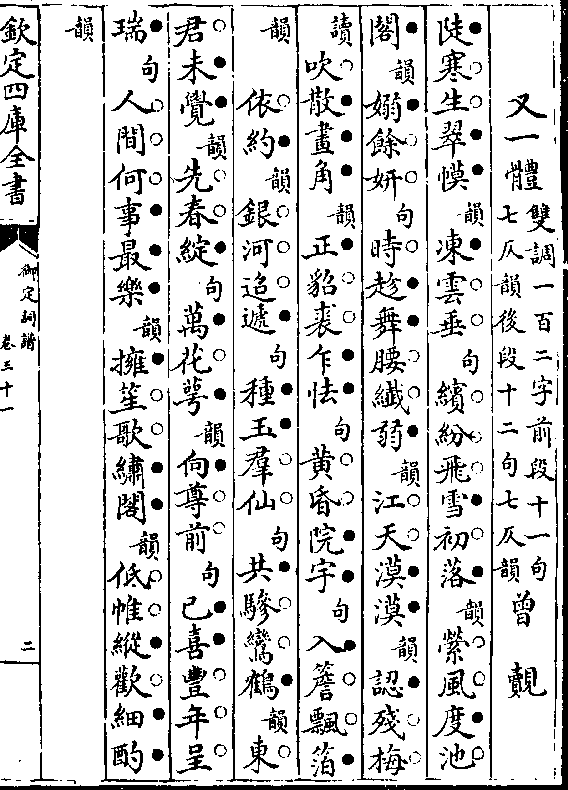 又一體 雙調一百二字前段十一句七仄韻後段十二句七仄韻 曾覿
陡寒生翠幙韻凍雲垂句繽紛飛雪初落韻縈風度池
閣韻嫋餘妍句時趁舞腰纖弱韻江天漠漠韻認殘梅
讀吹散畫角韻正貂裘乍怯句黃昏院宇句入簷飄箔
韻
依約韻銀河迢遞句種玉羣仙句共驂鸞鶴韻東
君未覺韻先春綻句萬花萼韻向尊前句已喜豐年呈
瑞句人間何事最樂韻擁笙歌繡閣韻低帷縱歡細酌
韻
欽定四庫全書
御定詞譜
卷三十一
二